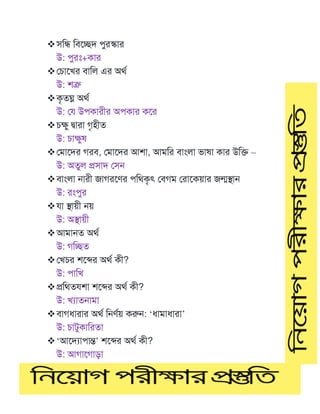 ❖সন্ধি বিচ্ছেদ পুরস্কার
উ: পুরঃ+কার
❖চোখের বালি এর অর্থ
উ: শত্রু
❖কৃতঘ্ন অর্থ
উ: যে উপকারীর অপকার করে
❖চক্ষু দ্বারা গৃহীত
উ: চাক্ষুষ
❖মোদের গরব, মোদের আশা, আমরি বাংলা ভাষা কার উক্তি –
উ: অতুল প্রসাদ সেন
❖বাংলা নারী জাগরণের পথিকৃৎ বেগম রোকেয়ার জন্মস্থান
উ: রংপুর
❖যা স্থায়ী নয়
উ: অস্থায়ী
❖আমানত অর্থ
উ: গচ্ছিত
❖খেচর শব্দের অর্থ কী?
উ: পাখি
❖প্রথিতযশা শব্দের অর্থ কী?
উ: খ্যাতনামা
❖বাগধারার অর্থ নির্ণয় করুন: ‘ধামাধারা’
উ: চাটুকারিতা
❖‘আদ্যোপান্ত’ শব্দের অর্থ কী?
উ: আগাগোড়া
নিয়োগ পরীক্ষার প্রস্তুতি
নিয়োগ পরীক্ষার প্রস্তুতি